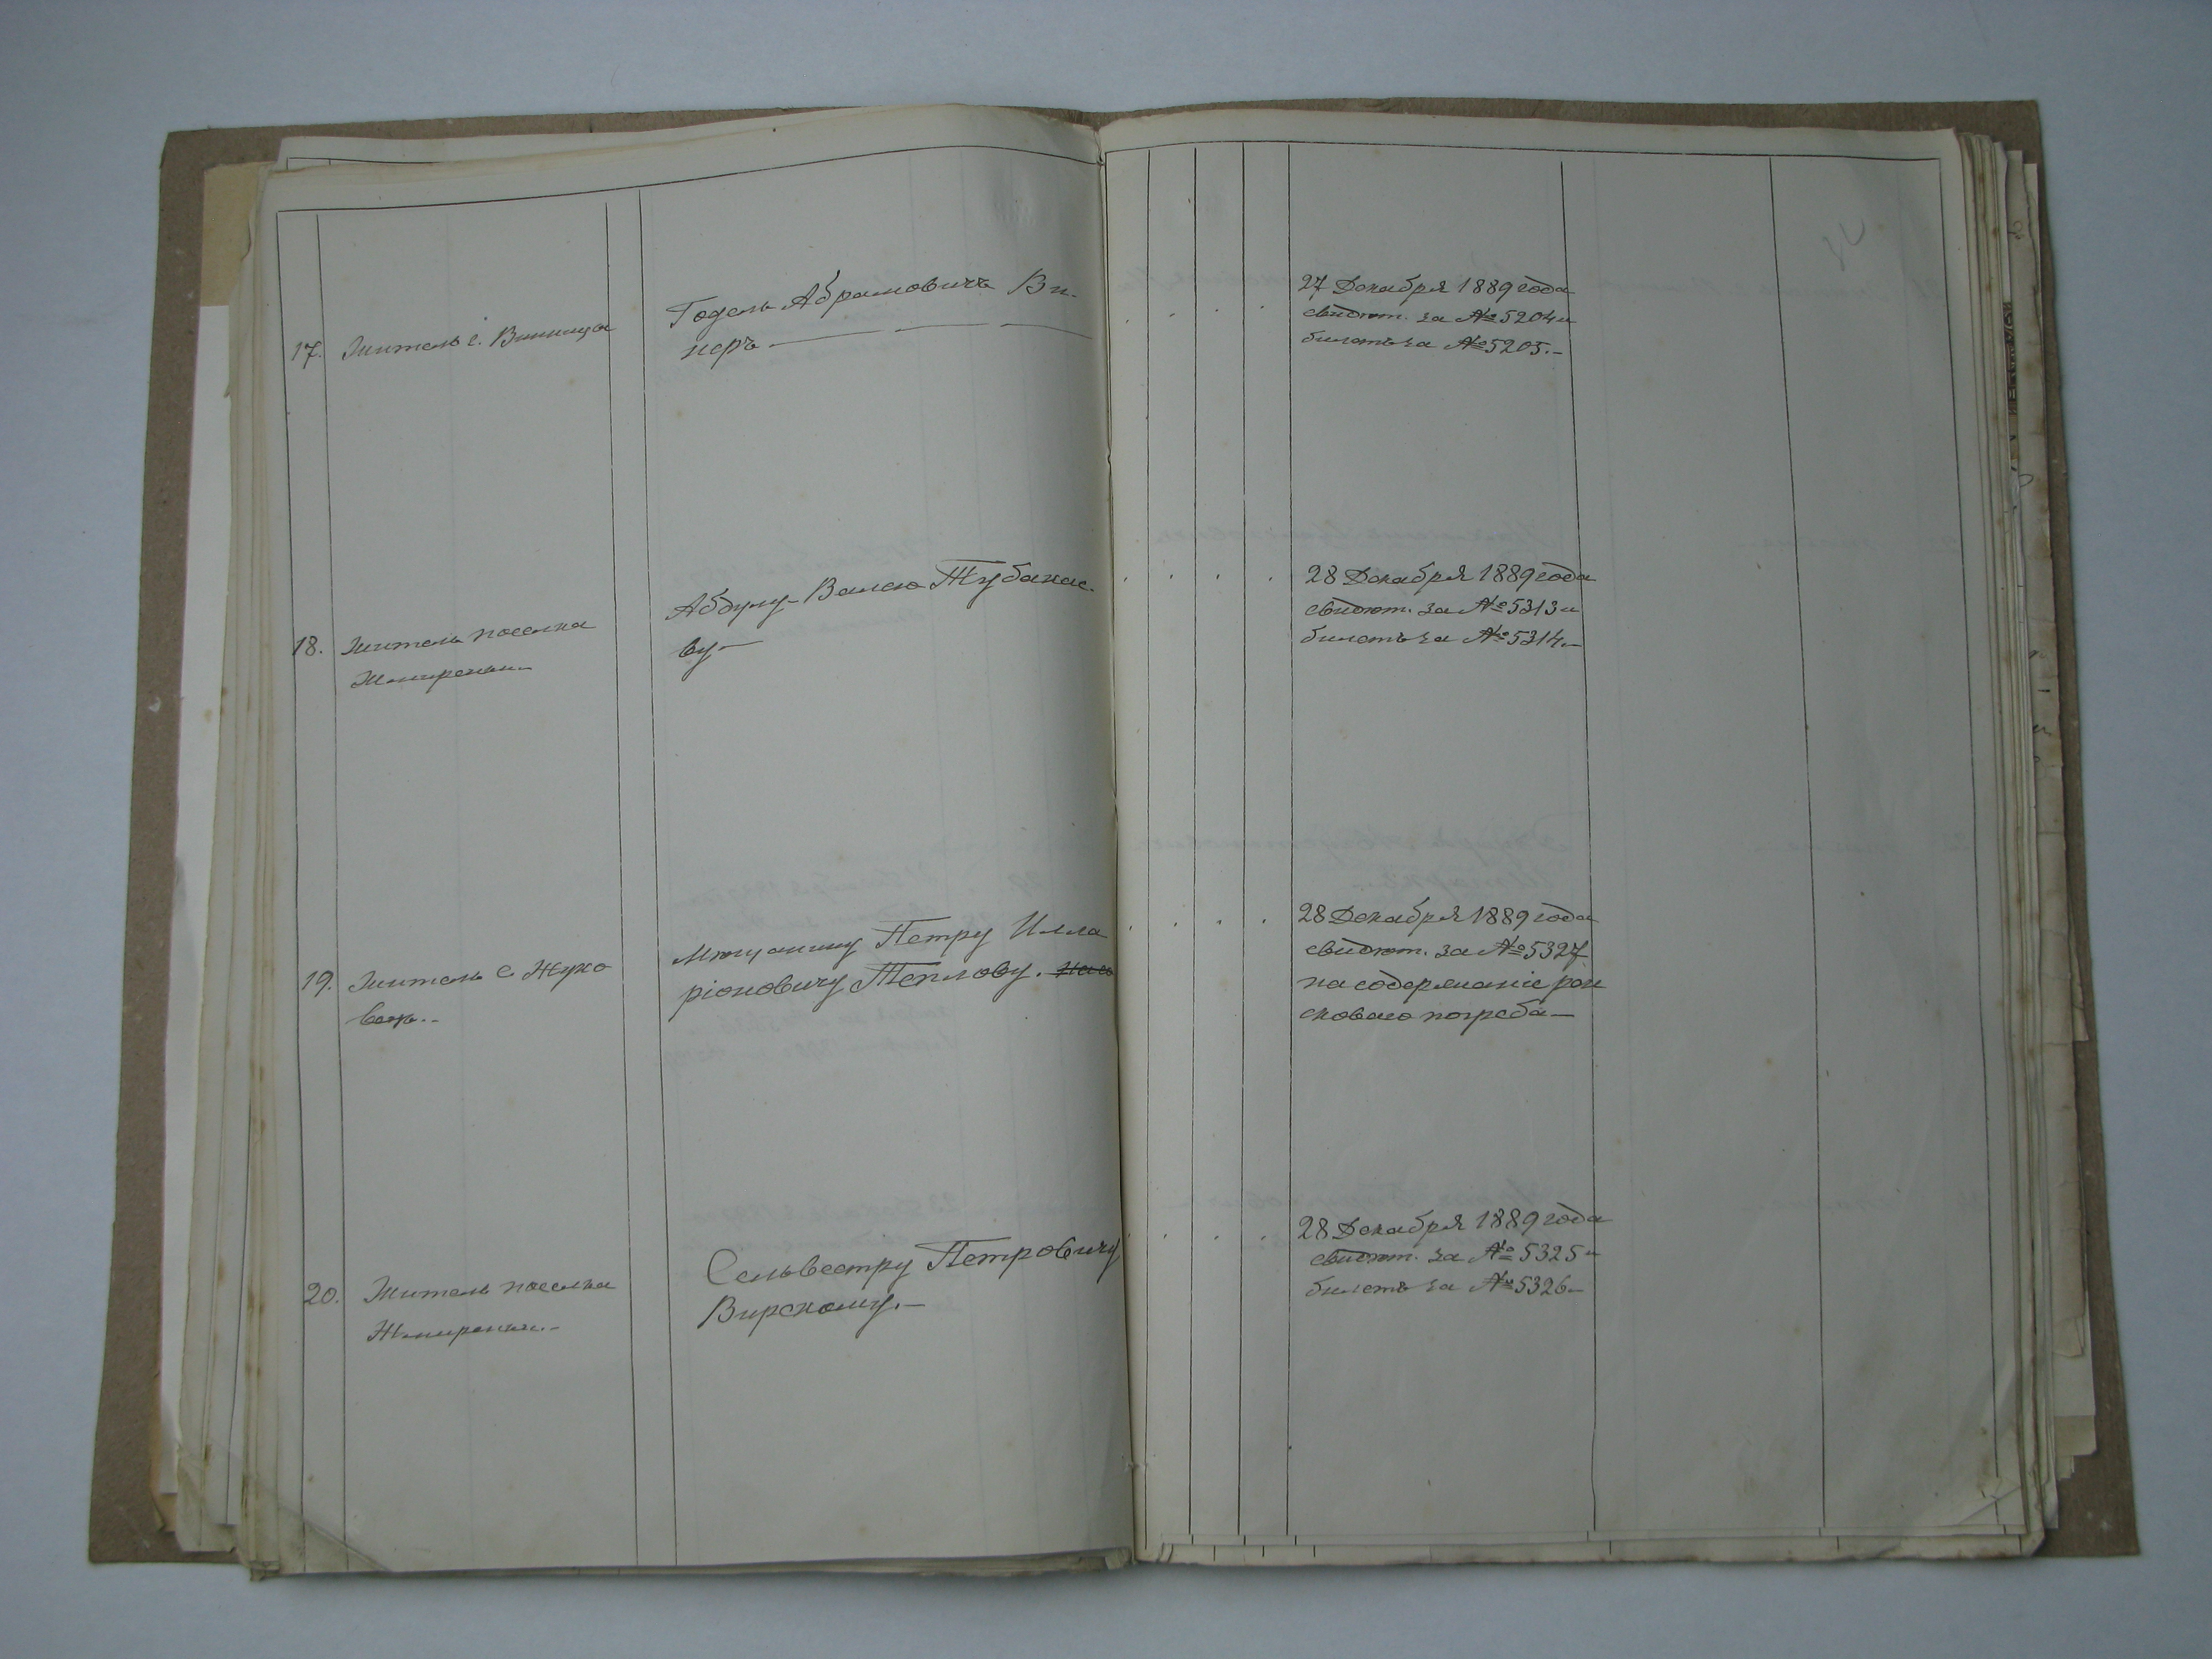 17.
Житель с. Винница
Годель Абрамовичъ Ви-
неръ
27 Декабря 1889 года
свидѣт. за № 5204 и
билетъ за № 5205.-
18.
Житель поселка
Жмиренки-
Абдулу-Валею Тубакае-
ву-
28 Декабря 1889 года
свидѣт. за № 5313 и
билетъ за № 5314.-
19.
Житель с. Жуко
вецъ.-
Мѣщанину Петру Илла
ріоновичу Теплову.
28 Декабря 1889 года
свидѣт. за № 5327
на содержаніе рен
сковаго погреба-
20.
Житель поселка
Жмиренки.-
Сельвестру Петровичу
Вирскому.-
28 Декабря 1889 года
свидѣт. за № 5325 и
билетъ за № 5326-